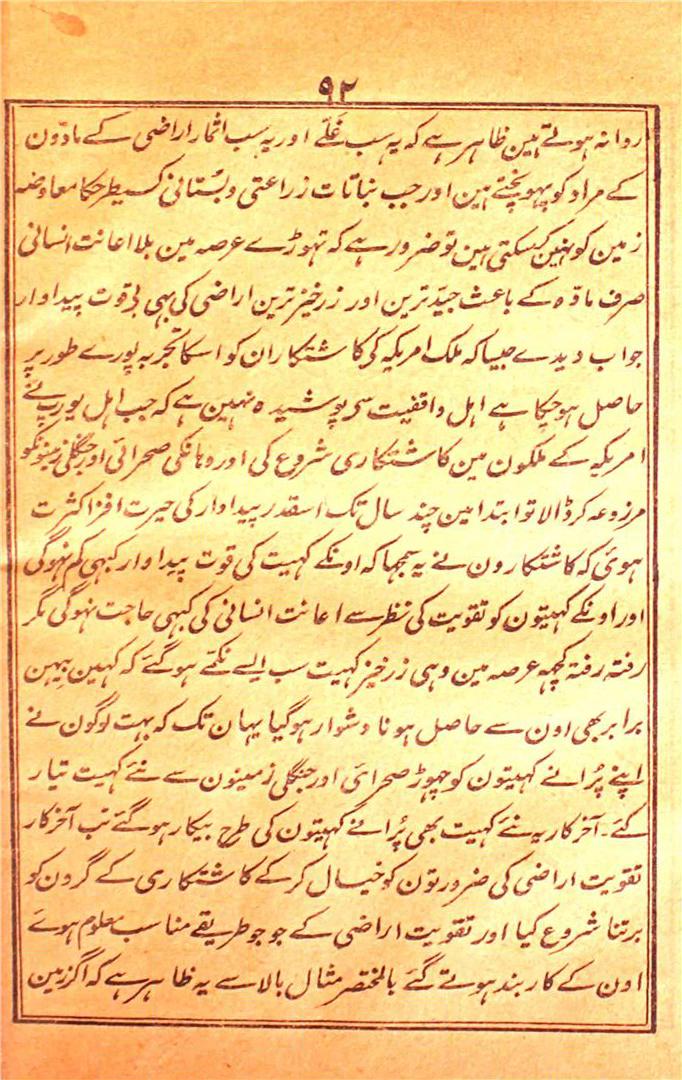 ۹۲
روانہ ہوتے ہین ظاہر ہے کہ یہ سب غلّے اور یہ سب اثمار اراضی کے مادّون
کے مراد کو پہوپختے ہین اور جب نباتات زراعتی و بُستانی کسیطرحکا معاوضہ
زمین کو نہین کرسکتی ہین تو ضرور ہے کہ تہوڑے عرصہ مین بلا اعانت انسانی
صرف مادّہ کے باعث جیّد ترین اور زرخیز ترین اراضی کی بہی قوت پیداوار
جواب دیدے جیسا کہ ملک امریکہ کی کاشتکاران کو اسکا تجربہ پورے طور پر
حاصل ہوچکا ہے اہل واقفیت سی پوشیدہ نہین ہے کہ جب اہل یورپ نے
امریکہ کے ملکون مین کاشتکاری شروع کی اور وہانکی صحرائی اور جنگلی زمینونکو
مرزوعہ کر ڈالا تو ابتدا مین چند سال تک اسقدر پیداوار کی حیرت افزا کثرت
ہوئی کہ کاشتکارون نے یہ سمجہا کہ اونکے کہیت کی قوت پیداوار کبہی کم نہوگی
اور اونکے کہیتون کو تقویت کی نظر سے اعانت انسانی کی کبہی حاجت نہوگی مگر
رفتہ رفتہ کچہہ عرصہ مین وہی زرخیز کہیت سب ایسے نکمّے ہوگئے کہ کہین بیہن
برابر بھی اون سے حاصل ہونا دشوار ہوگیا یہان تک کہ بہت لوگون نے
اپنے پُرانے کہیتون کو چہوڑ صحرائی اور جنگلی زمینون سے نئے کہیت تیار
کئے۔ آخر کار یہ نئے کہیت بھی پُرانے کہیتون کی طرح بیکار ہوگئے تب آخر کار
تقویت اراضی کی ضرورتون کو خیال کرکے کاشتکاری کے گرون کو
برتنا شروع کیا اور تقویت اراضی کے جو جو طریقے مناسب معلوم ہوئے
اون کے کاربند ہوتے گئے بالمختصر مثال بالا سے یہ ظاہر ہے کہ اگر زمین